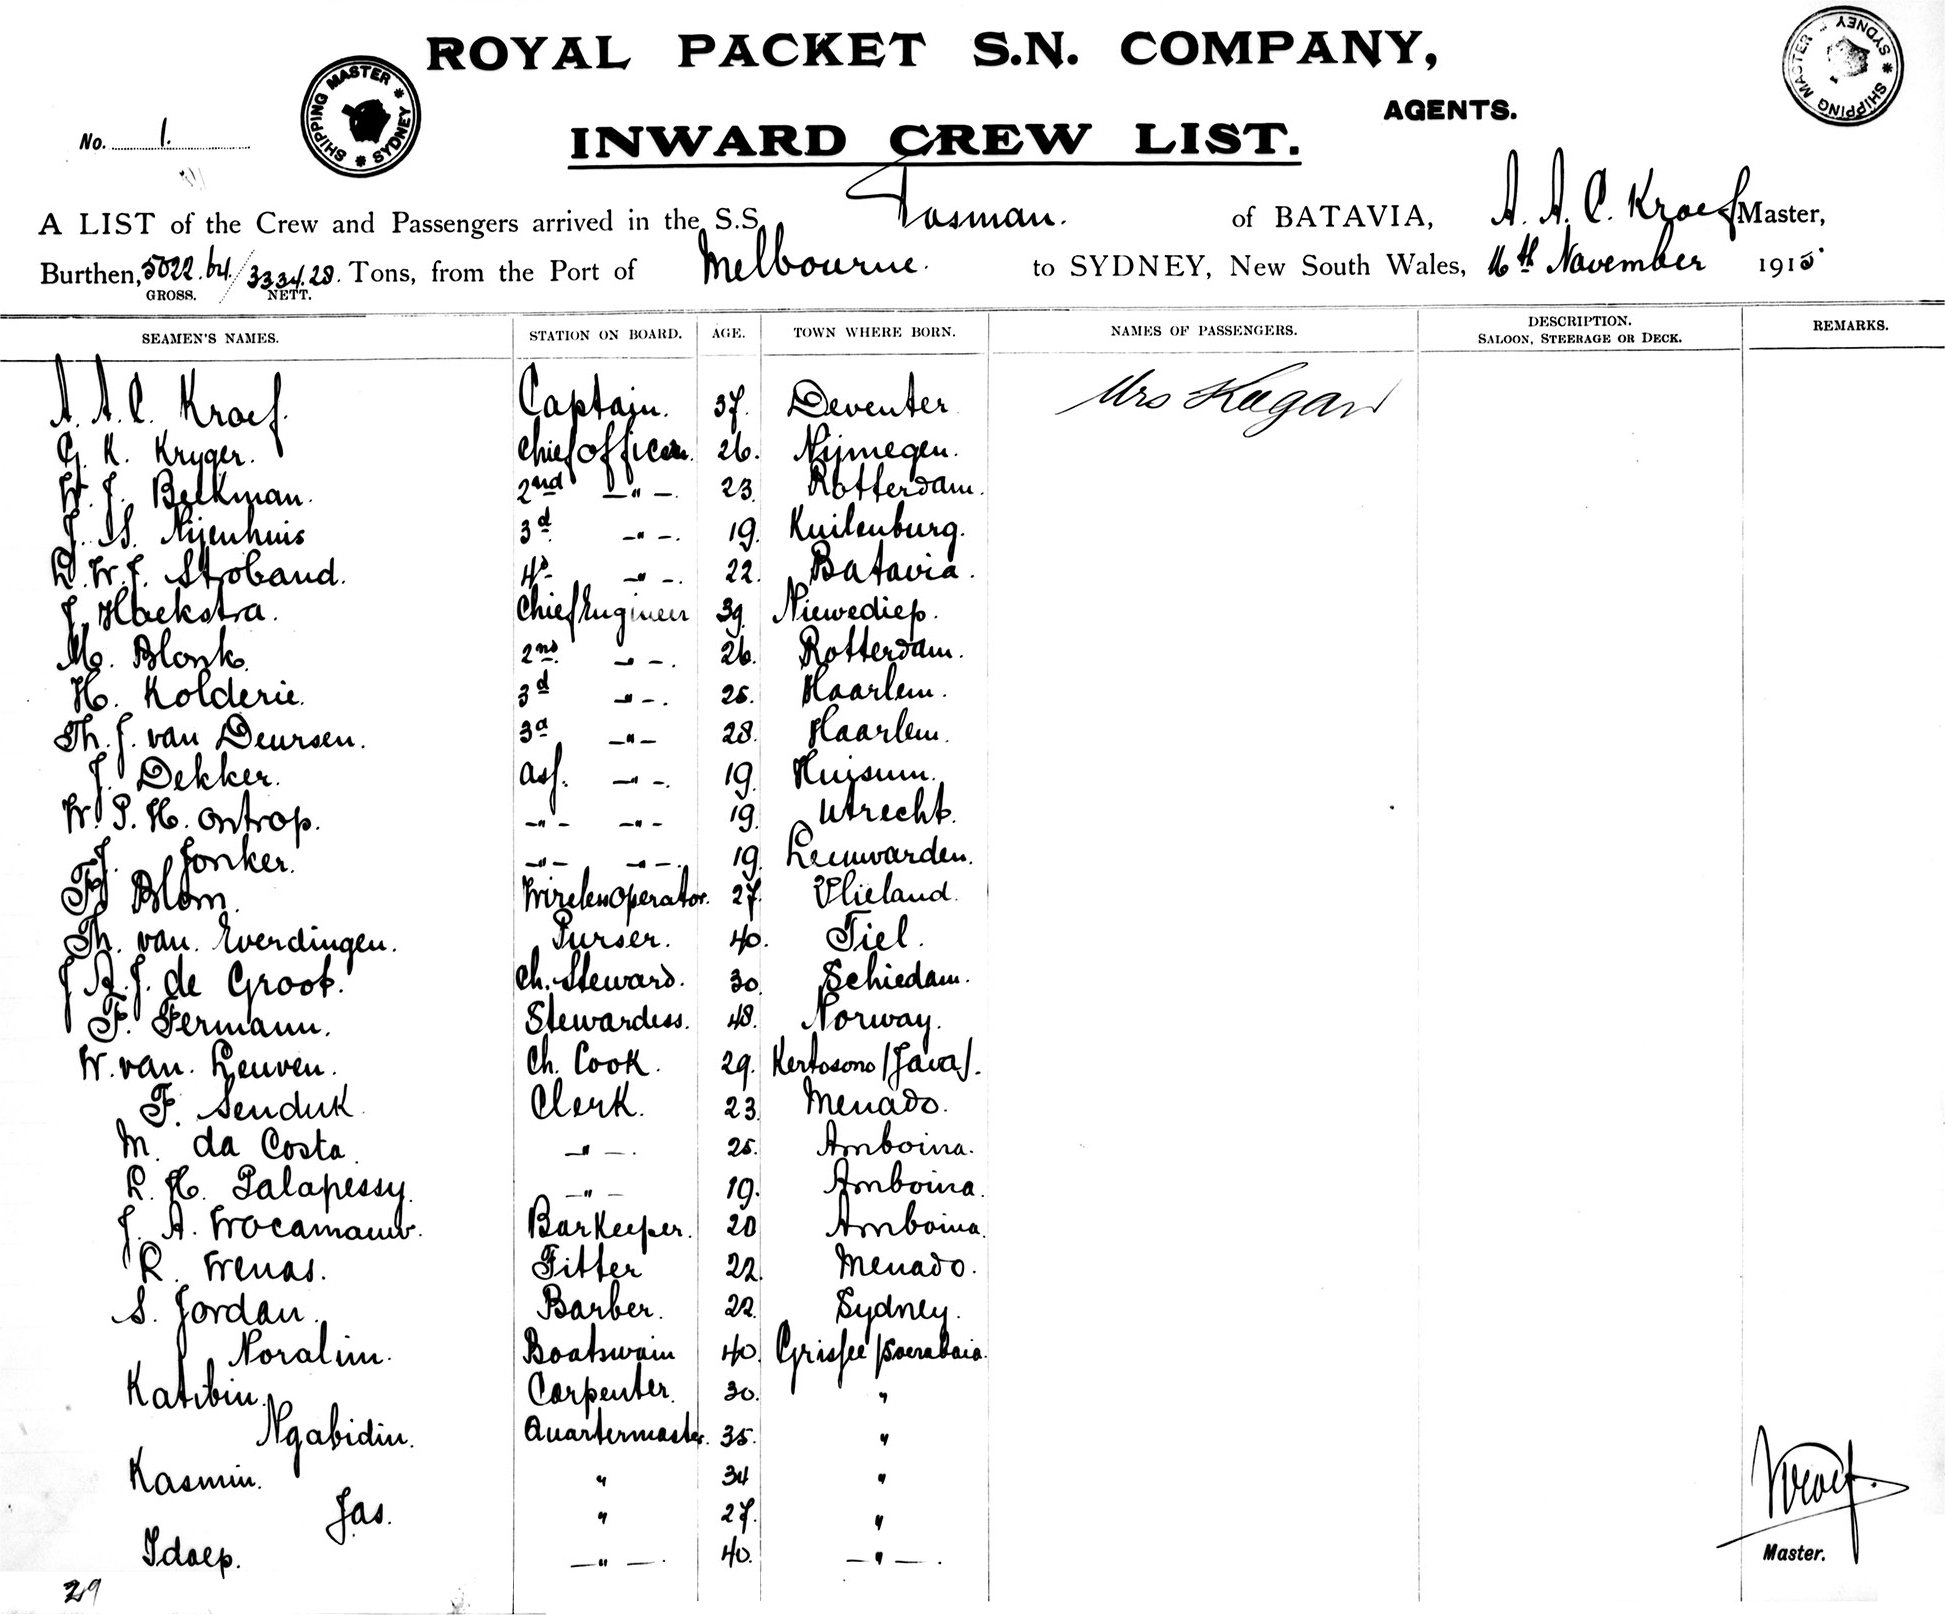 ROYAL PACKET S.N. COMPANY,
AGENTS.
SHIPPING MASTER * SYDNEY *
SHIPPING MASTER * SYDNEY *
No. 1.
INWARD CREW LIST.
A LIST of the Crew and Passengers arrived in the S.S. Tasman. of BATAVIA, A. A. C. Kroef Master,
Burthen, 5022.64./3334.28. Tons, from the Port of Melbourne. to SYDNEY, New South Wales, 16th November 1915
GROSS. NETT.
SEAMEN'S NAMES. STATION ON BOARD. AGE. TOWN WHERE BORN. NAMES OF PASSENGERS. DESCRIPTION. SALOON, STEERAGE OR DECK. REMARKS.
A. A. C. Kroef. Captain. 37. Deventer Mrs Kagan
G. K. Kryger. Chief officer. 26. Nijmegen.
W. J. Beekman. 2nd —"—. 23. Rotterdam.
J. S. Nijenhuis 3d —"—. 19. Kuilenburg.
L. W. J. Stroband. 4d —"—. 22. Batavia.
J. Hoekstra. Chief Engineer 39. Niewediep.
M. Blonk. 2nd. —"—. 26. Rotterdam.
H. Kolderie. 3d —"—. 25. Haarlem.
Th. J. van Deursen. 3d —"— 28. Haarlem.
J. Dekker. Ass. —"—. 19. Huisum.
W. P. H. Ontrop. —"— —"— 19. Utrecht.
J. Jonker. —"— —"—. 19. Leeuwarden.
F. Blom. Wireless operator. 27. Vlieland.
Th. van. Everdingen. Purser. 40. Tiel.
J A. J. de Groot. Ch. Steward. 30. Schiedam.
F. Fermann. Stewardess. 48. Norway.
W. van. Leuven. Ch. Cook. 29. Kertosono /Java/.
F. Senduk. Clerk. 23. Menado.
M. da Costa. —"—. 25. Amboina.
L. H. Palapessy. —"— 19. Amboina.
J. A. Wocamauw. Barkeeper. 20 Amboina.
R. Wenas. Fitter 22. Menado.
S. Jordan. Barber. 22. Sydney.
Noralim. Boatswain 40. Grissee /Soerabaia.
Katibin. Carpenter. 30. "
Ngabidin. Quartermaster. 35. "
Kasmin. " 34 "
Jas. " 27. "
Idoep. —"—. 40. —"—.
29
Kroef.
Master.